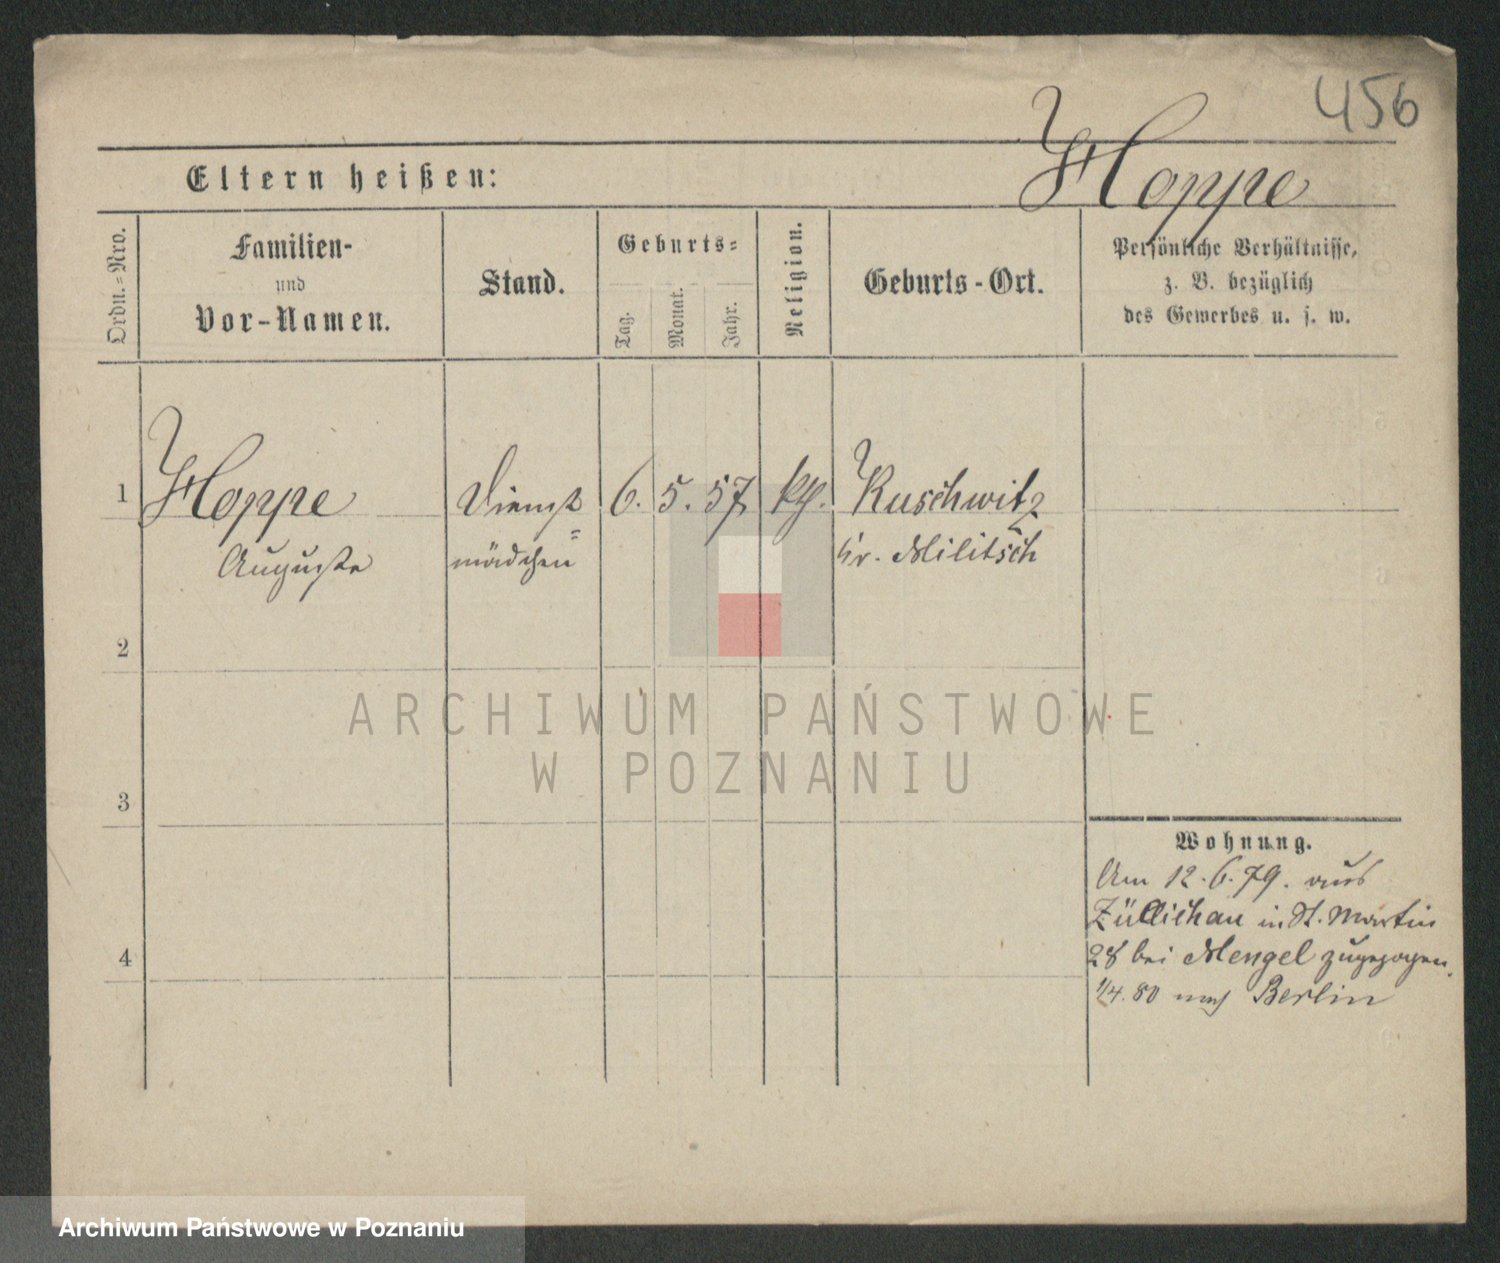 456
Hoppe
Eltern heißen:
Ordn.-Nro.
Familien-
und
Vor-Namen.
Stand.
Geburts-
Tag.
Monat.
Jahr.
Religion.
Geburts-Ort.
Persönliche Verhältnisse,
z. B. bezüglich
des Gewerbes u. s. w.
1 Hoppe Dienst 6. 5. 57 kth. Kuschwitz
Auguste mädchen Kr. Militsch
2
3
4
ARCHIWUM PAŃSTWOWE
W POZNANIU
Wohnung.
Am 12.6.79. aus
Züllichau in St. Martin
28 bei Mengel zugezogen.
1/4.80 nach Berlin
Archiwum Państwowe w Poznaniu